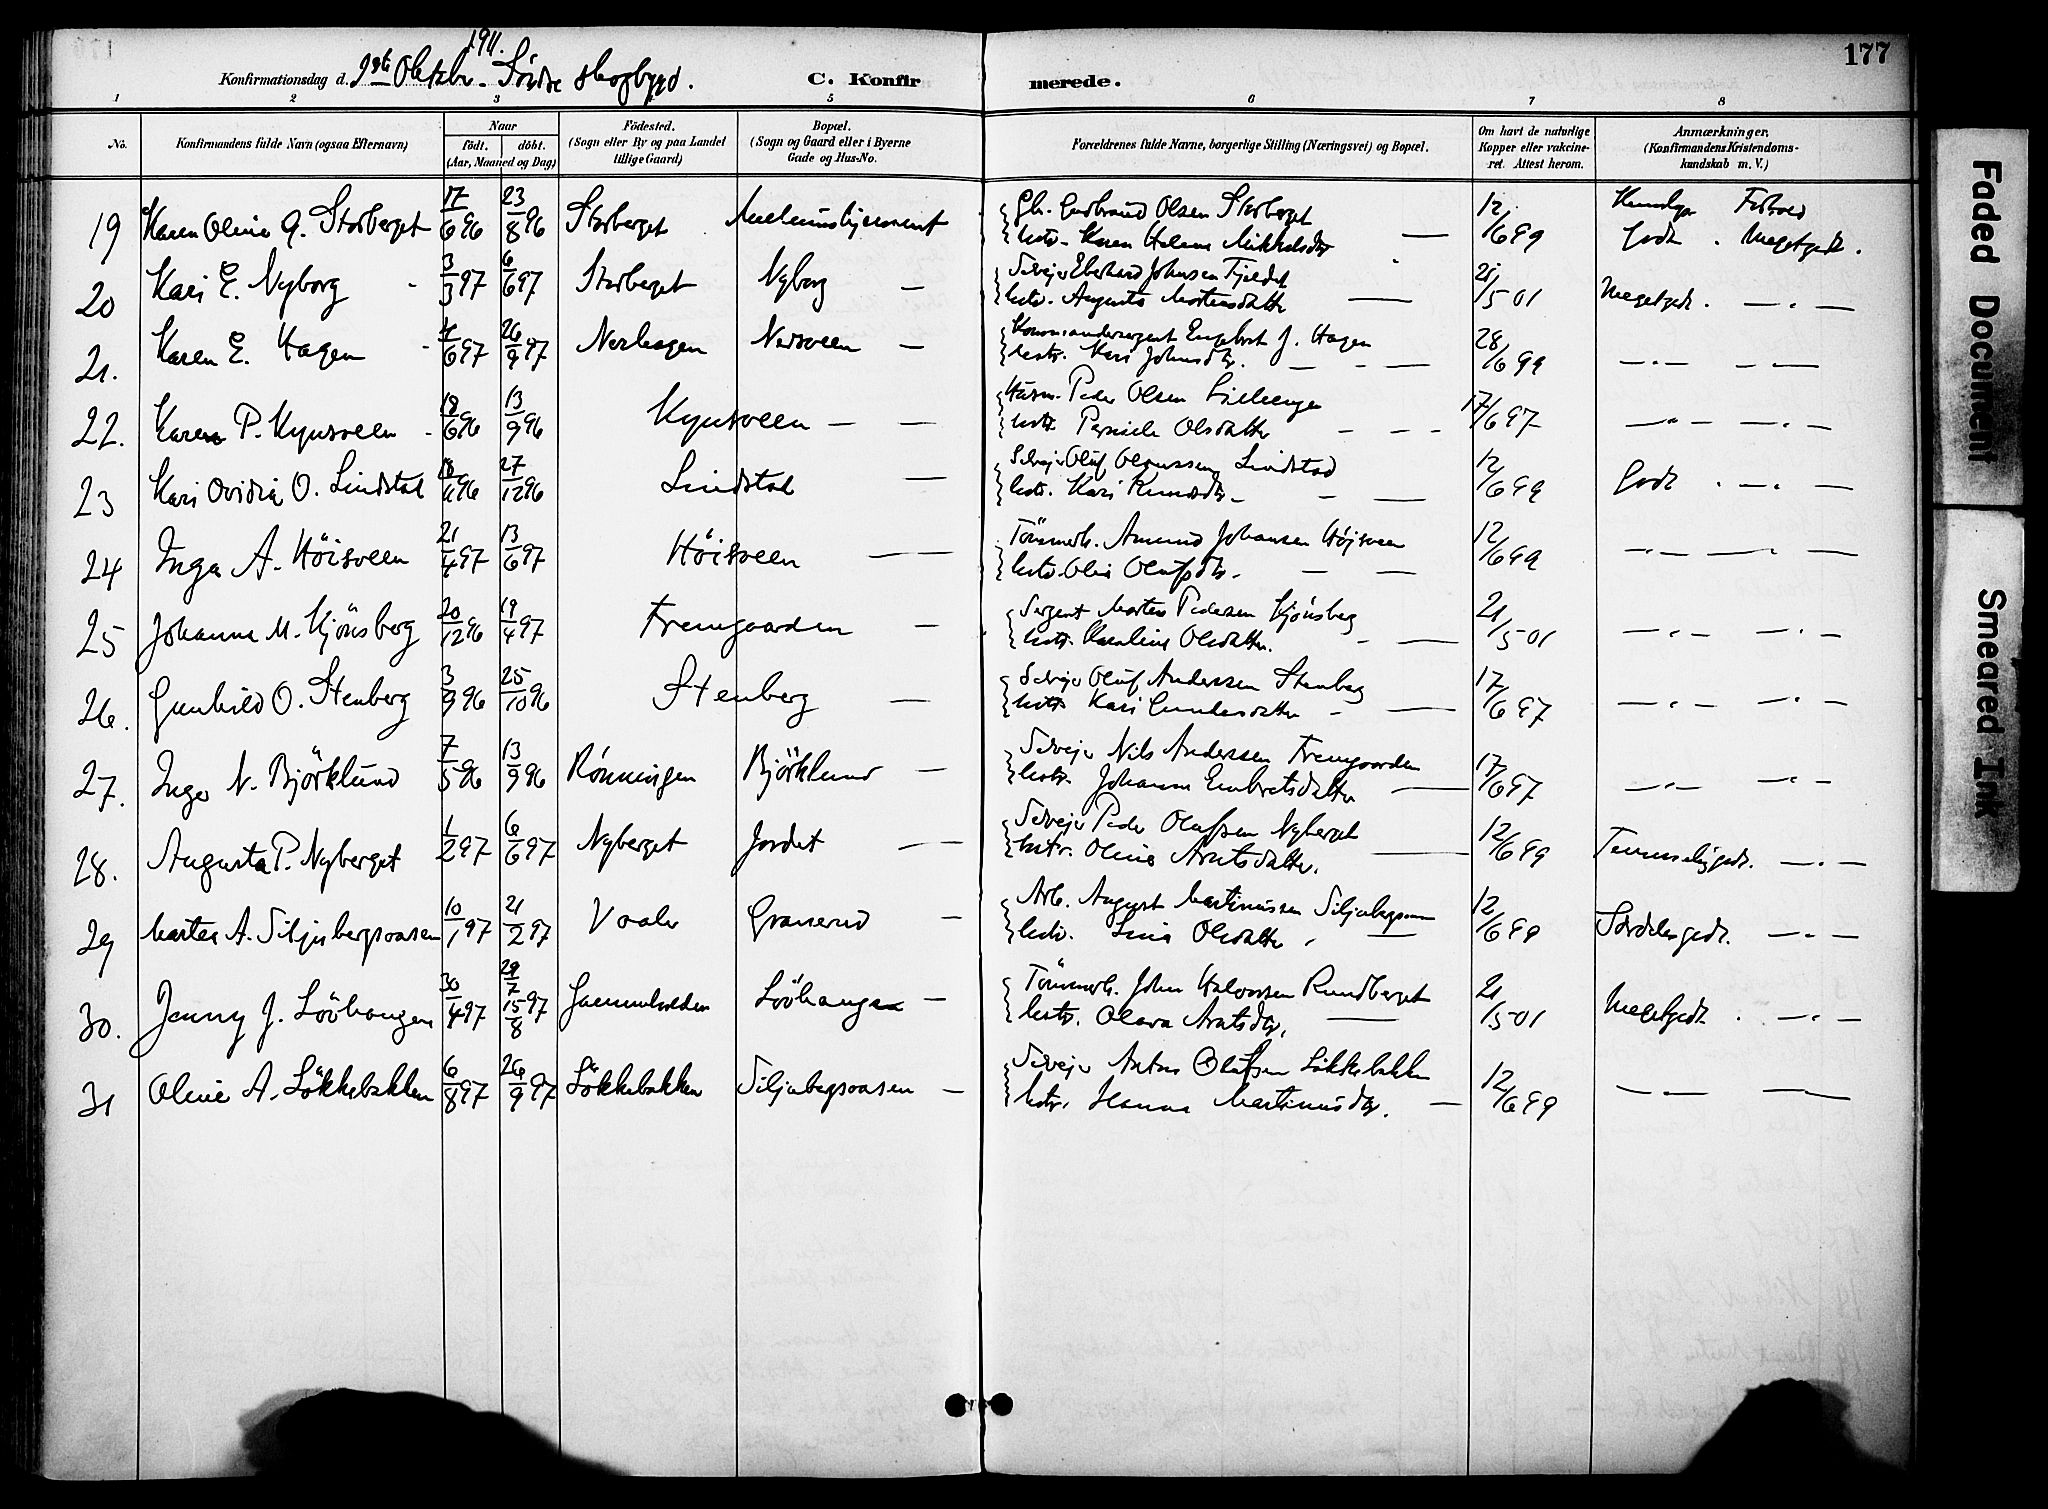 177
1911.
Konfirmationsdag d. 9de Oktbr. Søndre Skogbygd.
C. Konfirmerede.
1 2 3 4 5 6 7 8
No.
Konfirmandens fulde Navn (ogsaa Efternavn)
Naar
født. døbt.
(Aar, Maaned og Dag)
Fødested.
(Sogn eller By og paa Landet
tillige Gaard)
Bopæl.
(Sogn og Gaard eller i Byerne
Gade og Hus-No.
Forældrenes fulde Navne, borgerlige Stilling (Næringsvei) og Bopæl.
Om havt de naturlige
Kopper eller vaccine-
ret. Attest herom.
Anmærkninger.
(Konfirmandens Kristendoms-
kundskab m. V.)
19 Karen Oline G. Storberget 17/6 96 23/8 96 Storberget
Gbr. Gudbrand Olsen Storberget
hstr. Karen Helene Mikkelsdtr — 12/6 99 Godt . Megetgodt.
20 Kari E. Nyborg 3/3 97 6/6 97 Storberget Nyborg —
Selvejer Eberhard Johnsen Fjeldet
hstr. Augusta Mortensdatter — 21/5 01 Megetgodt. — " —
21. Karen E. Hagen 4/6 97 26/9 97 Nerhagen Nersveen —
Kommandersergent Engebret J. Hagen
hustr. Kari Johnsdtr. — - — 28/6 99 — " — — " —
22. Karen P. Kynsveen 18/6 96 13/9 96 Kynsveen — —
Husm. Peder Olsen Lilleenge
hstr. Pernille Olsdatter — — — 17/6 97 — " — — " —
23 Kari Ovidia O. Lindstad 27/12 96 Lindstad —
Selvejer Oluf Olaussen Lindstad
hstr. Kari Knudsdtr. — — 12/6 99 Godt . — " —
24 Inga A. Höisveen 21/4 97 13/6 97 Höisveen — —
Tömmerh. Amund Johansen Höjsveen
hstr. Olia Olufsdtr. — — 12/6 99 — " — — " —
25 Johanne M. Kjönsberg 20/12 96 19/4 97 Fremgaarden —
Sergent Morten Pedersen Kjönsberg
hstr. Karoline Olsdatter. — 21/5 01 — " — — " —
26. Gunhild O. Stenberg 3/9 96 25/10 96 Stenberg —
Selvejer Oluf Anderssen Stenberg
hstr. Kari Gundersdatter — 17/6 97 — " — — " —
27. Inga N. Björklund 7/5 96 13/9 96 Rönningen Björklund —
Selvejer Nils Anderssen Fremgaarden
hstr. Johanne Embretsdatter — 17/6 97 — " — — " —
28. Augusta P. Nyberget 1/2 97 6/6 97 Nyberget Jordet — —
Selvejer Peder Olafssen Nyberget
hstr. Oline Arntsdatter. — 12/6 99 Temmeliggodt. — " —
29 Marten A. Siljubergsaasen 10/1 97 21/2 97 Vaaler Granerud —
Arb. August Martinussen Siljubergsaasen
hstr. Lina Olsdatter. — 12/6 99 Særdelesgodt. — " —
30. Jenny J. Lövhaugen 30/4 97 29/7 15/8 97 Gammelvolden Lövhaugen —
Tömmerh. John Halvorsen Rundberget
hstr. Olava Arntsdtr, — 21/5 01 Megetgodt . — " —
31 Oline A. Lökkebakken 6/8 97 26/9 97 Lökkebakken Siljubergsaasen —
Selvejer Anton Olufsen Lökkebakken
hstr. Hanna Martinusdtr. — 12/6 99 — " — —
Faded Document
Smeared Ink